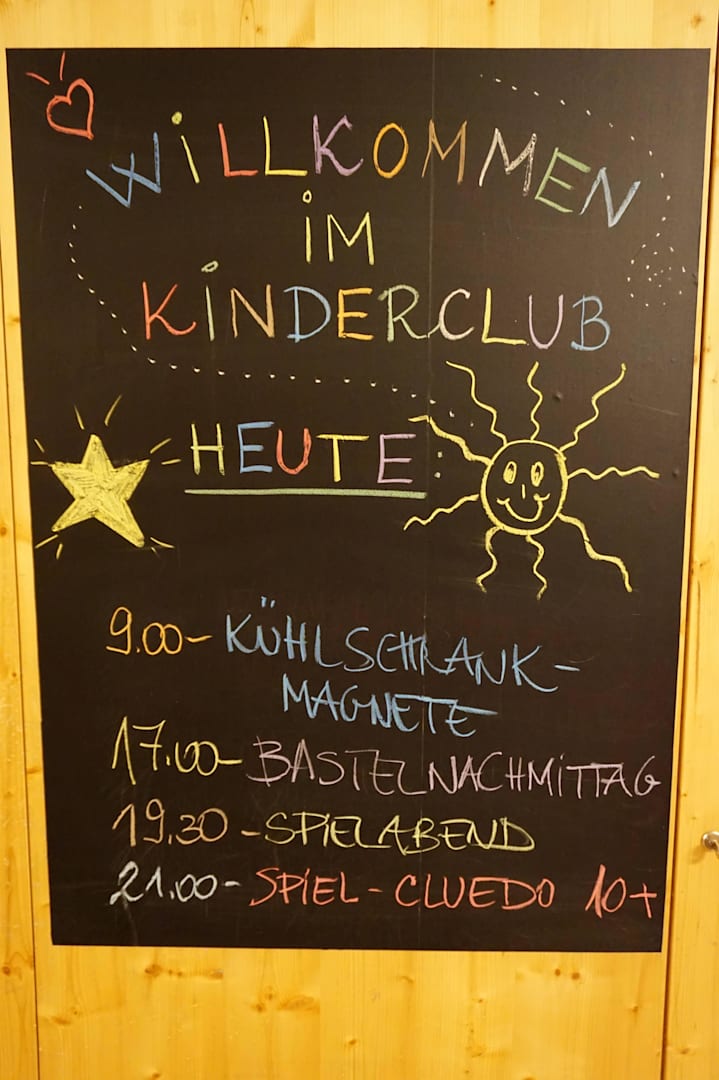 WiLLKOMMEN
iM
KiNDERCLUB
HEUTE:
9.00- KÜHLSCHRANK-
MAGNETE
17.00- BASTELNACHMITTAG
19.30 - SPiELABEND
21.00- SPiEL - CLUEDO 10+